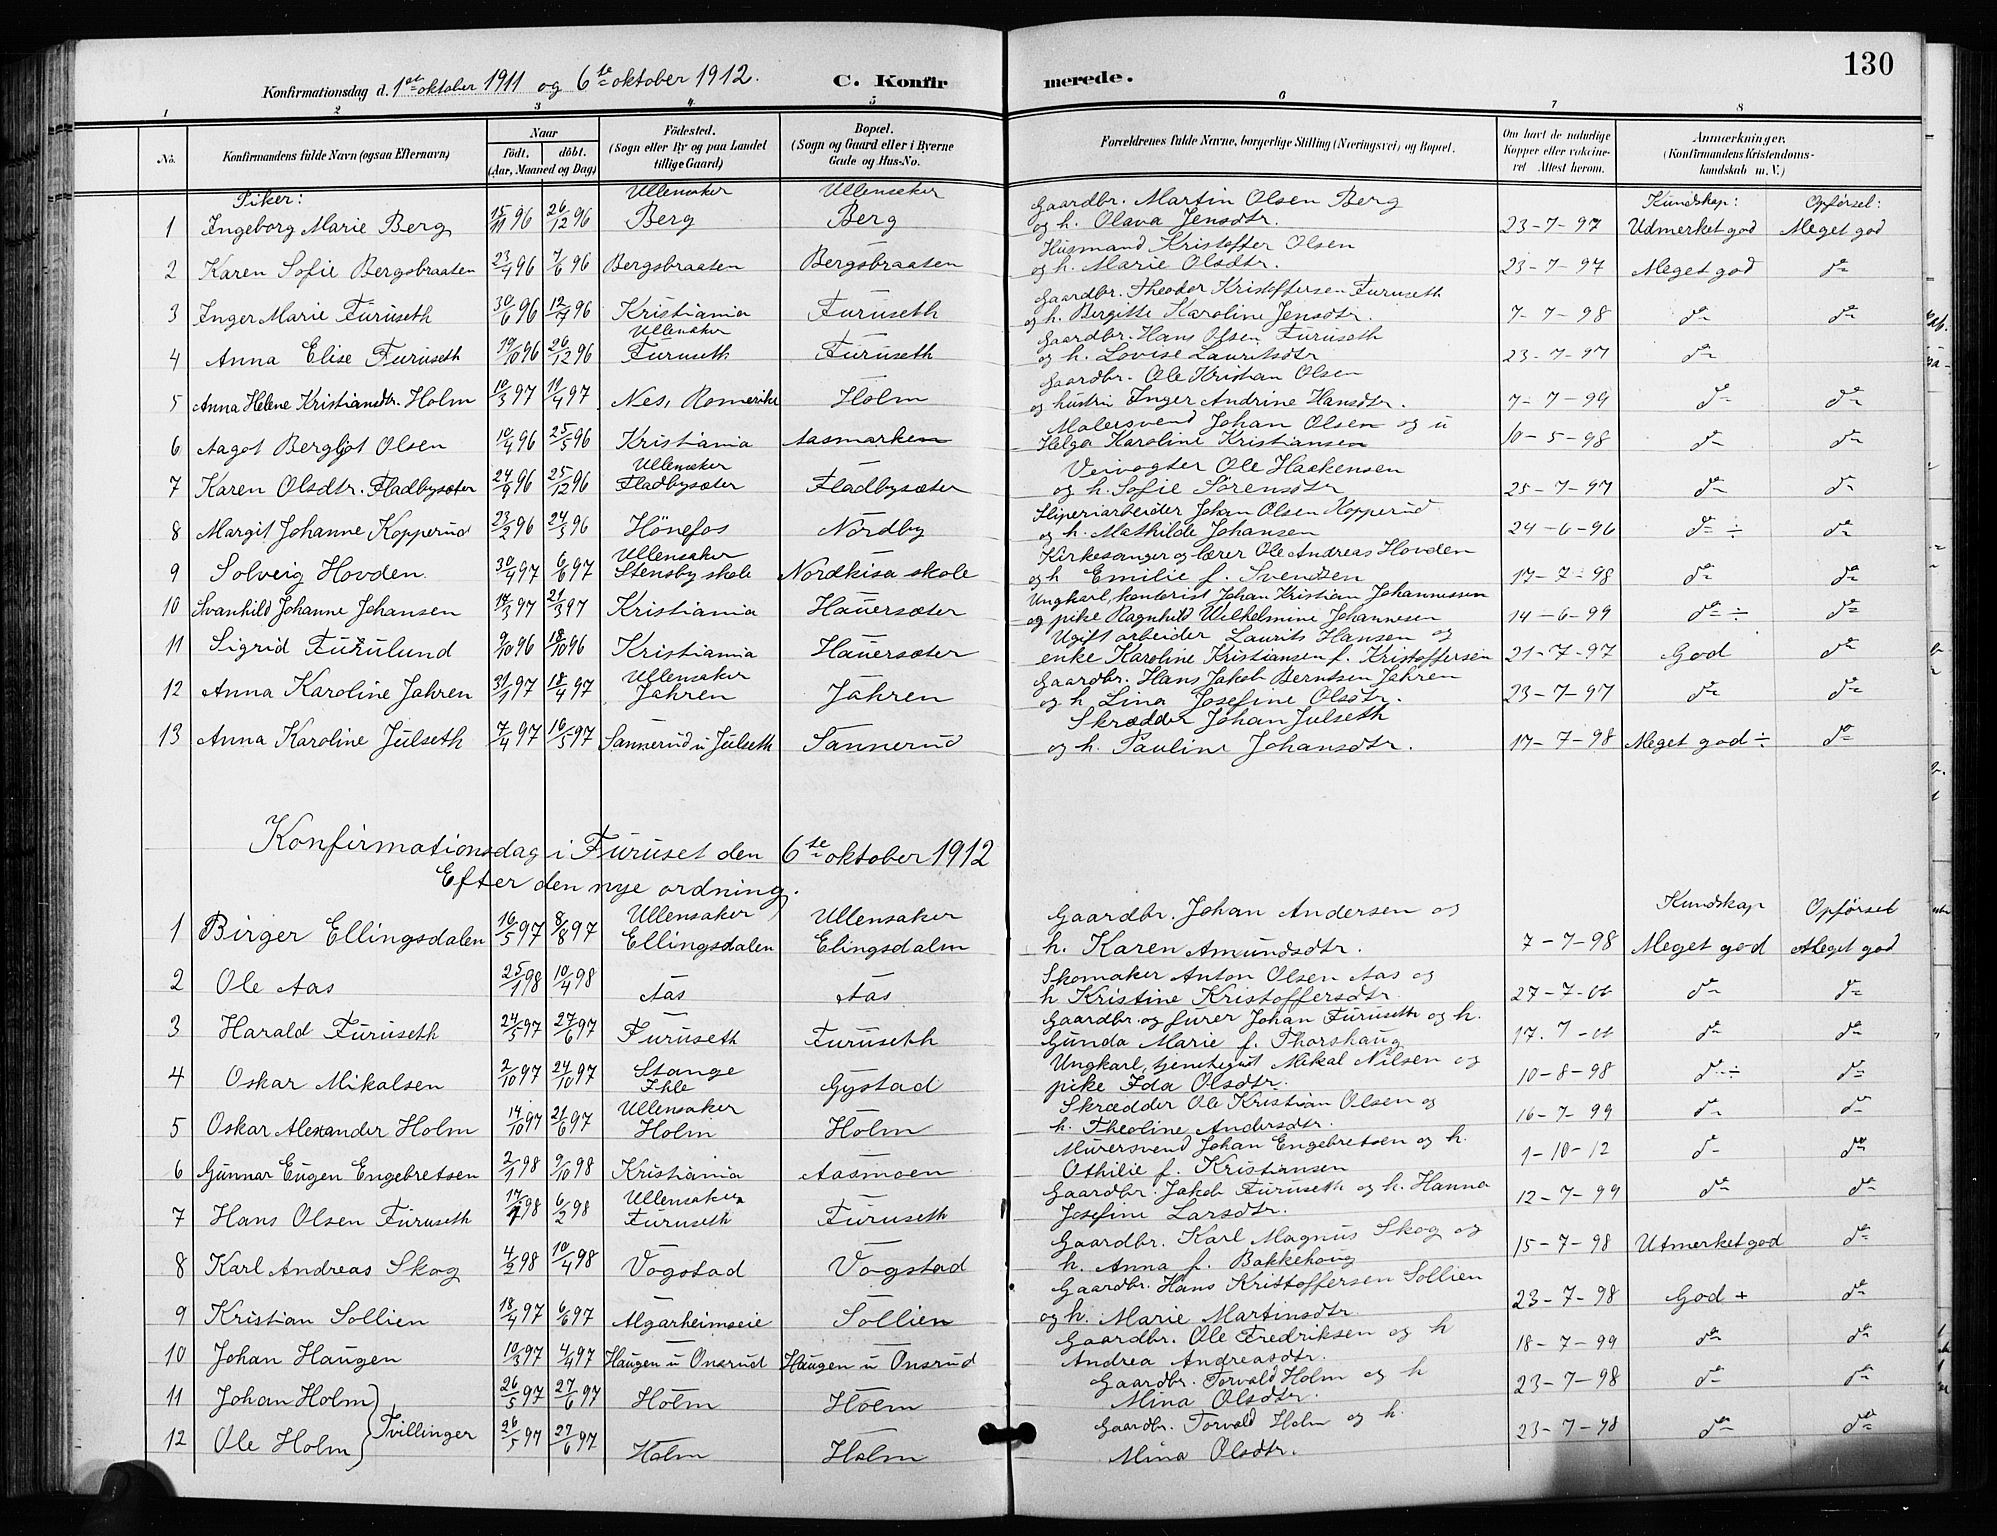 130
Konfirmationsdag d. 1ste oktober 1911 og 6te oktober 1912. C. Konfirmerede.
1 2 3 4 5 6 7 8
No. Konfirmandens fulde Navn (ogsaa Efternavn) Naar födt. döbt. (Aar, Maaned og Dag) Födested. (Sogn eller By og paa Landet tillige Gaard) Bopæl. (Sogn og Gaard eller i Byerne Gade og Hus-No. Forældrenes fulde Navne, borgerlige Stilling (Næringsvei) og Bopæl. Om havt de naturlige Kopper eller vakcineret Attest herom. Anmærkninger, (Konfirmandens Kristendomskundskab m. V.)
Piker: Ullensaker Ullensaker Gaardbr. Martin Olsen Berg Kundskap: Opførsel:
1 Ingeborg Marie Berg 15/11 96 26/12 96 Berg Berg og h. Olava Jensdtr. 23-7-97 Udmerket god Meget god
Husmand Kristoffer Olsen
2 Karen Sofie Bergsbraaten 23/4 96 7/6 96 Bergsbraaten Bergsbraaten og h. Marie Olsdtr. 23-7-97 Meget god do
Gaardbr. Theodor Kristoffersen Furuseth
3 Inger Marie Furuseth 30/6 96 Kristiania Furuseth og h. Birgitte Karoline Jensdtr. 7-7-98 do do
Ullensaker Gaardbr. Hans Olsen Furuseth
4 Anna Elise Furuseth 19/10 96 26/12 96 Furuseth Furuseth og h. Lovise Lauritsdtr 23-7-97 do
Gaardbr. Ole Kristian Olsen
5 Anna Helene Kristiansdtr. Holm 10/3 97 19/4 97 Nes, Romerike Holm og hustru Inger Andrine Hansdtr. 7-7-99 do do
Malersvend Johan Olsen og u
6 Aagot Bergljot Olsen 10/4 96 25/5 96 Kristiania Aasmarken Helga Karoline Kristiansen 10-5-98 do do
Ullensaker Veivogter Ole Haakensen
7 Karen Olsdtr. Fladbysæter 24/9 96 25/12 96 Fladbysæter Fladbysæter og h. Sofie Sørensdtr 25-7-97 do do
Sliperiarbeider Johan Olsen Kopperud
8 Margit Johanne Kopperud 23/2 96 24/5 96 Hönefos Nordby og h. Mathilde Johansen 24-6-96 do ÷ do
Ullensaker Kirkesanger og lærer Ole Andreas Hovden
9 Solveig Hovden. 30/4 97 6/6 97 Stensby skole Nordkisa skole og h Emilie f. Svendsen 17-7-98 do do
Ungkarl, kontorist Johan Kristian Johannessen
10 Svanhild Johanne Johansen 14/3 97 21/3 97 Kristiania Hauersæter og pike Ragnhild Wilhelmine Johannesen 14-6-99 do ÷ do
Ugift arbeider Laurits Hansen og
11 Sigrid Furulund 9/10 96 18/10 96 Kristiania Hauersæter enke Karoline Kristiansen f. Kristoffersen 21-7-97 God do
Ullensaker Gaardbr. Hans Jakob Berntsen Jahren
12 Anna Karoline Jahren 31/1 97 18/4 97 Jahren Jahren og h Lina Josefine Olsdtr. 23-7-97 do do
Skrædder Johan Julseth
13 Anna Karoline Julseth 7/4 97 16/5 97 Sannerud u Julseth Sannerud og h. Pauline Johansdtr. 17-7-98 Meget god ÷ do
Konfirmationsdag i Furuset den 6te oktober 1912
Efter den nye ordning.
Ullensaker Ullensaker Gaardbr. Johan Andersen og Kundskap Opførsel
1 Birger Ellingsdalen 16/5 97 8/8 97 Ellingsdalen Elingsdalen h. Karen Amundsdtr. 7-7-98 Meget god Meget god
Skomaker Anton Olsen Aas og
2 Ole Aas 25/1 98 10/4 98 Aas Aas h Kristine Kristoffersdtr. 27-7-00 do do
Gaardbr. og furer Johan Furuseth og h.
3 Harald Furuseth 24/5 97 27/6 97 Furuseth Furuseth Gunda Marie f. Thorshaug 17-7-00 do do
Stange Ungkarl, tjenstegut Mikal Nilsen og
4 Oskar Mikalsen 2/10 97 24/10 97 Ihle Gystad pike Ida Olsdtr. 10-8-98 do ÷ do
Ullensaker Skrædder Ole Kristian Olsen og
5 Oskar Alexander Holm 14/10 97 21/6 97 Holm Holm h. Theoline Andersdtr. 16-7-99 do do
Murersvend Johan Engebretsen og h.
6 Gunnar Eugen Engebretsen 2/1 98 9/10 98 Kristiania Aasmoen Othilie f. Kristiansen 1-10-12 do do
Ullensaker Gaardbr. Jakob Furuseth og h. Hanna
7 Hans Olsen Furuseth 98 6/2 98 Furuseth Furuseth Josefine Larsdtr. 12-7-99 do do
Gaardbr. Karl Magnus Skog og
8 Karl Andreas Skog 4/2 98 10/4 98 Vogstad Vogstad h. Anna f. Bakkehaug 15-7-98 Utmerket god do
Gaardbr. Hans Kristoffersen Sollien
9 Kristian Sollien 18/4 97 6/6 97 Algarheimseie Sollien og h. Marie Martinsdtr. 23-7-98 God + do
Gaardbr. Ole Fredriksen og h
10 Johan Haugen 10/3 97 4/4 97 Haugen u Onsrud Haugen u Onsrud Andrea Andreasdtr. 18-7-99 do do
Gaardbr. Torvald Holm og h
11 Johan Holm 26/5 97 27/6 97 Holm Holm Mina Olsdtr. 23-7-98 do do
Tvillinger Gaardbr. Torvald Holm og h.
12 Ole Holm 26/5 97 27/6 97 Holm Holm Mina Olsdtr. 23-7-98 do do